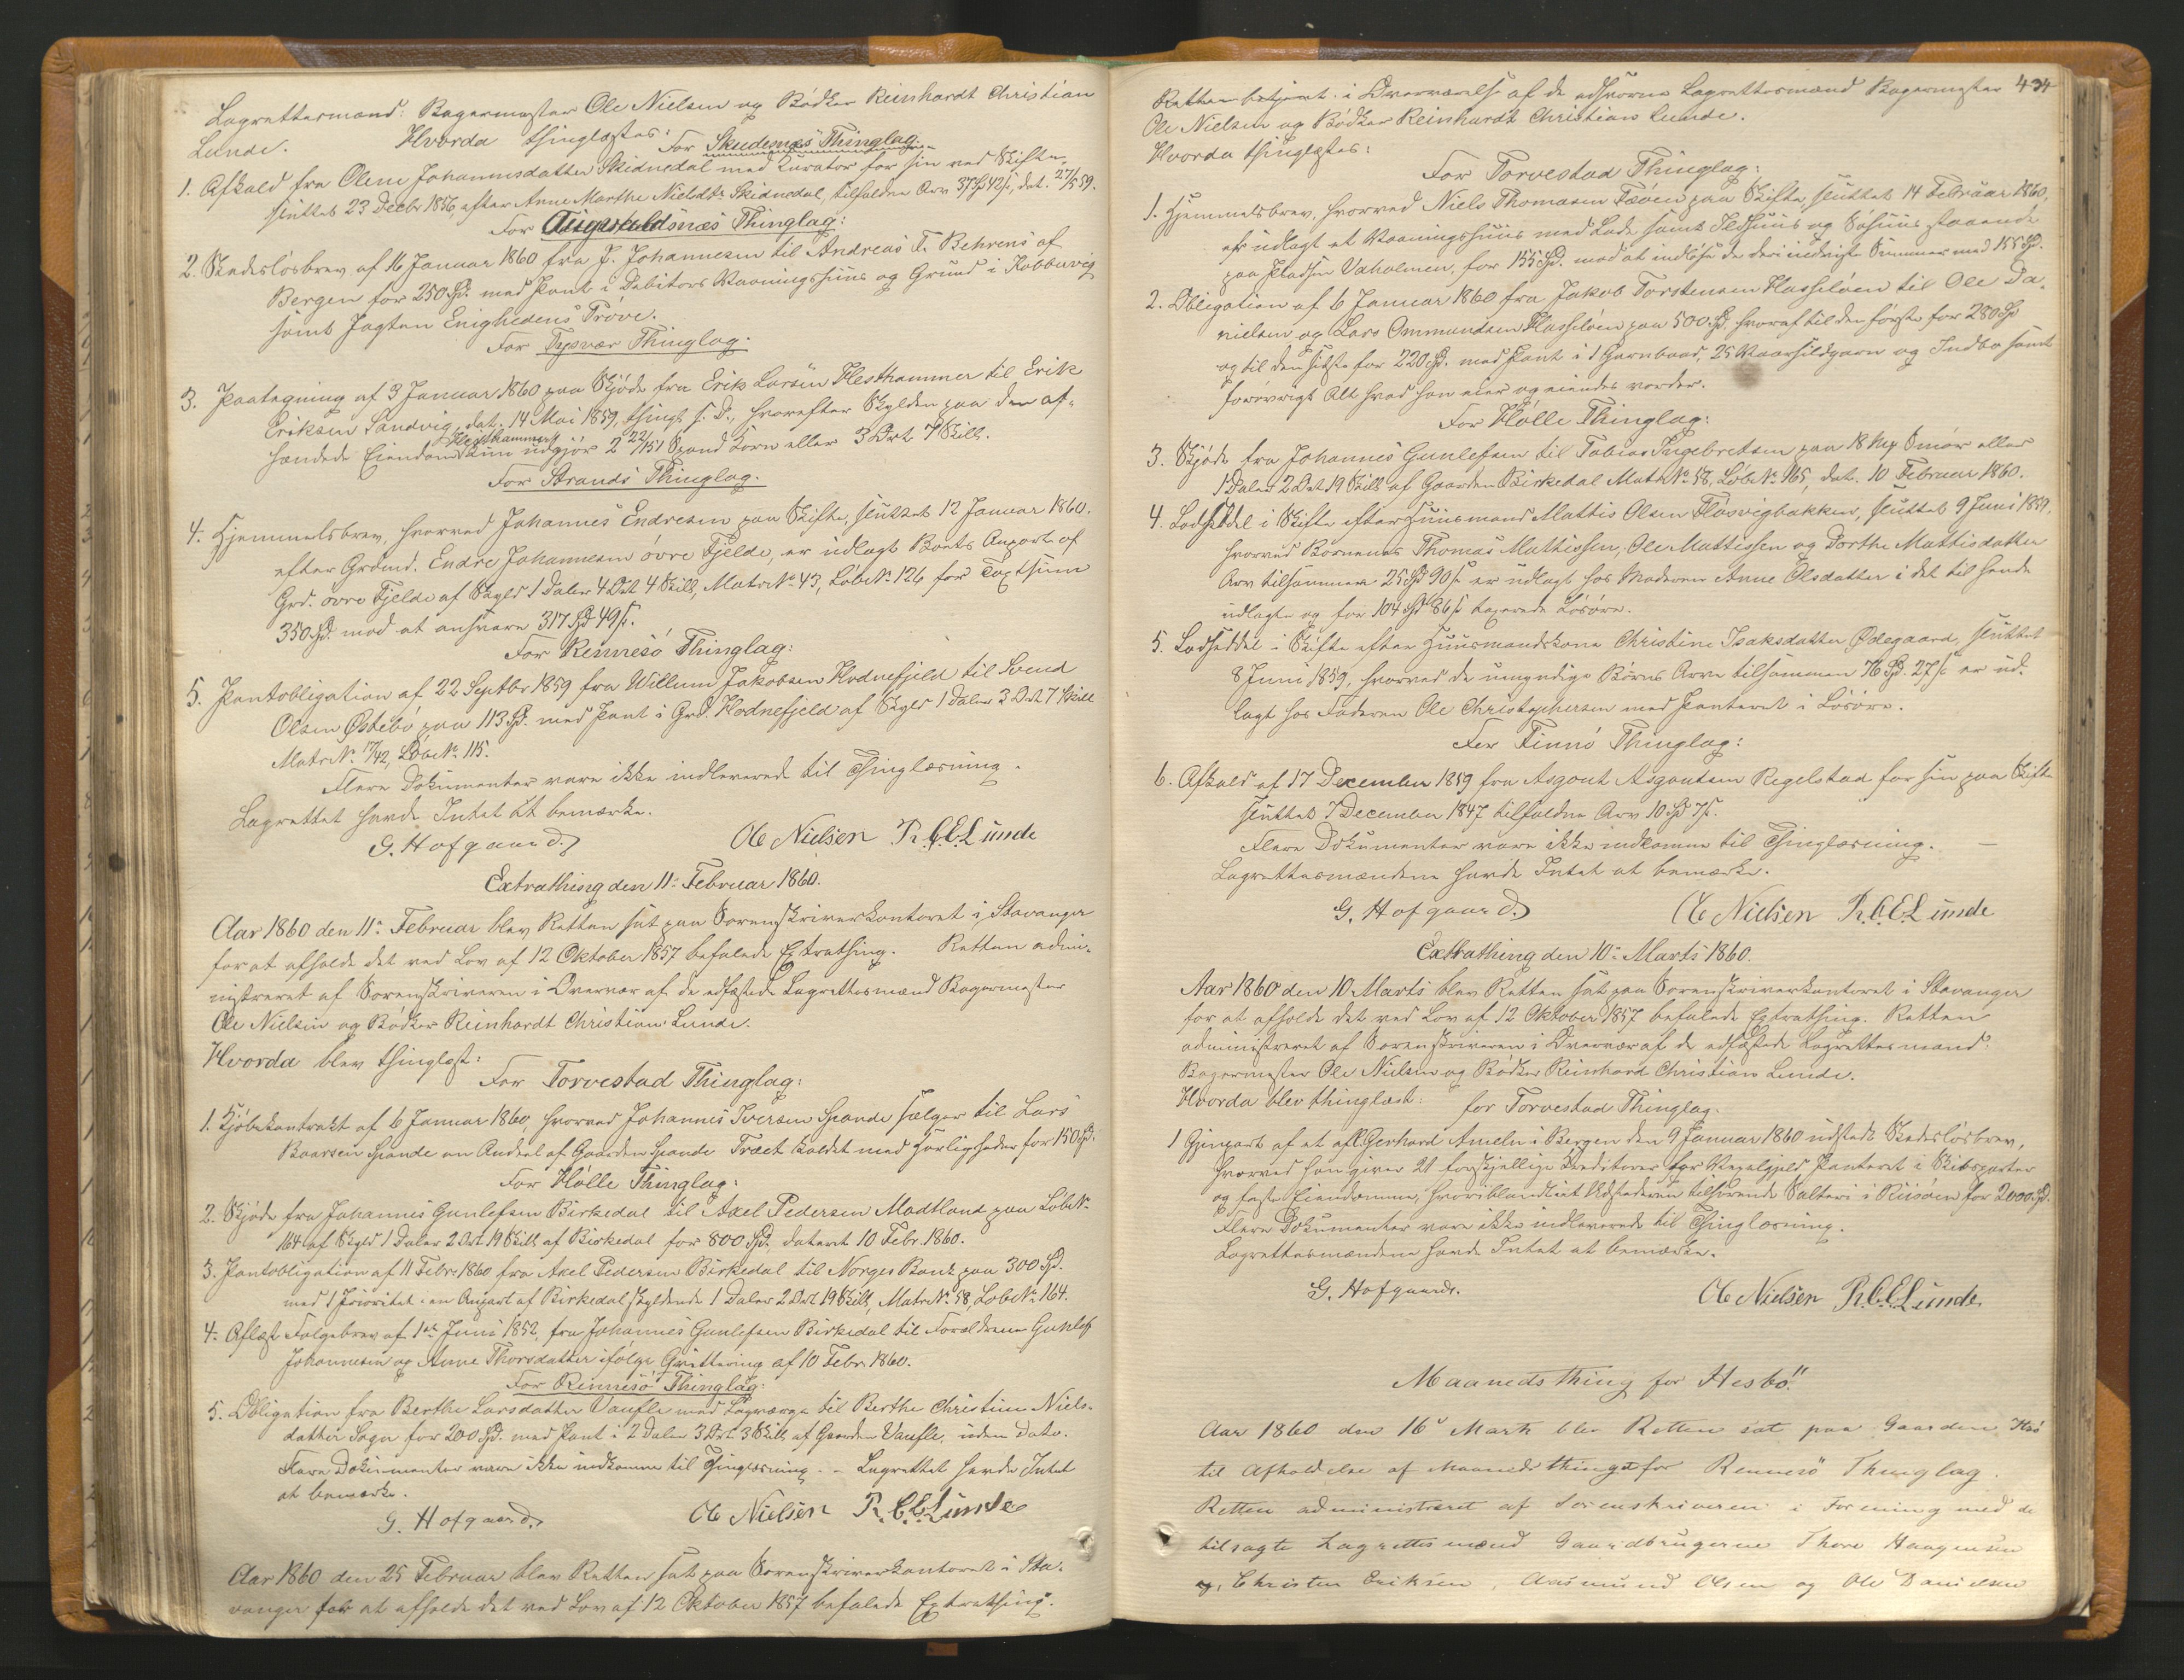 Lagrettesmænd: Bagermester Ole Nielsen og Bødker Reinhardt Christian
Lunde. Hvorda thinglæstes: For Skudesnæs Thinglag.
1. Afkald fra Olene Johannesdatter Skidnedal med Curator for sin ved Skifte,
sluttet 23 Decbr 1856, efter Anne Marthe Nielsdtr Skidnedal, tilfaldne Arv 37 Spd 42 s, dat. 27/5 59.
For Augvaldsnæs Thinglag:
2. Skadesløsbrev af 16 Januar 1860 fra J. Johannesen til Andreas F. Behrens af
Bergen for 250 Spd. med Pant i Debitors Vaaningshuus og Grund i Kobbavig
samt Jagten Enighedens Prøve.
For Tysvær Thinglag.
3. Paategning af 3 Januar 1860 paa Skjøde fra Erik Larsen Hesthammer til Erik
Eriksen Sandvig, dat. 14 Mai 1859, thingl. s. D., hvorefter Skylden paa den af-
hændede Eiendom Hesthammer kun udgjør 2 22/151 Spand Korn eller 3 Ort 7 Skill.
For Strands Thinglag.
4. Hjemmelsbrev, hvorved Johannes Endresen paa Skifte, sluttet 12 Januar 1860.
efter Grdmd. Endre Johannesen øvre Fjelde, er udlagt Boets Anpart af
Grd. øvre Fjelde af Skyld 1 Daler 4 Ort 4 Skill, Matr No 43, Løbe No 126 for Taxtsum
350 Spd. mod at ansvare 317 Spd 49 s.
For Rennesø Thinglag:
5. Pantobligation af 22 Septbr 1859 fra Willum Jakobsen Hodnefjeld til Svend
Olsen Østebø paa 113 Spd. med Pant i Grd. Hodnefjeld af Skyld 1 Daler 3 Ort 7 Skill
Matr No 17/42, Løbe No 115.
Flere Dokumenter vare ikke indleverede til Thinglæsning.
Lagrettet havde Intet at bemærke.
G. Hofgaard. Ole Nielsen R. C. E. Lunde
Extrathing den 11te Februar 1860.
Aar 1860 den 11te Februar blev Retten sat paa Sorenskriverkontoret i Stavanger
for at afholde det ved Lov af 12 Oktober 1857 befalede Extrathing. Retten admi-
nistreret af Sorenskriveren i Overvær af de edfæstede Lagrettesmænd Bagermester
Ole Nielsen og Bødker Reinhardt Christian Lunde.
Hvorda blev thinglæst:
For Torvestad Thinglag:
1. Kjøbekontrakt af 6 Januar 1860, hvorved Johannes Iversen Spande sælger til Lars
Baarsen Spande en Andeel af Gaarden Spande Træet kaldet med Herligheder for 150 Spd.
For Hølle Thinglag:
2. Skjøde fra Johannes Gunlefsen Birkedal til Axel Pedersen Madtland paa Løbe No
164 af Skyld 1 Daler 2 Ort 19 Skill af Birkedal for 800 Spd. dateret 10 Febr. 1860.
3. Pantobligation af 11 Febr. 1860 fra Axel Pedersen Birkedal til Norges Bank paa 300 Spd.
med 1 Prioritet i en Anpart af Birkedal skyldende 1 Daler 2 Ort 19 Skill, Matr No 58, Løbe No 164.
4. Aflæst Følgebrev af 1ste Juni 1852, fra Johannes Gunlefsen Birkedal til Forældrene Gunlef
Johannesen og Anne Thorsdatter ifølge Qvittering af 10 Febr. 1860.
For Rennesø Thinglag:
5. Obligation fra Berthe Larsdatter Vaufle med Lagværge til Berthe Christine Niels-
datter Sagn for 200 Spd. med Pant i 2 Daler 3 Ort 3 Skill af Gaarden Vaufle, uden Dato.
Flere Dokumenter vare ikke indkomne til Thinglæsning. - Lagrettet havde Intet
at bemærke.
G. Hofgaard. Ole Nielsen R. C. E. Lunde
Aar 1860 den 25 Februar blev Retten sat paa Sorenskriverkontoret i Sta-
vanger for at afholde det ved Lov af 12 Oktober 1857 befalede Extrathing.
434
Retten betjent i Overværelse af de edsvorne Lagrettesmænd Bagermester
Ole Nielsen og Bødker Reinhardt Christian Lunde.
Hvorda thinglæstes:
For Torvestad Thinglag:
1. Hjemmelsbrev, hvorved Niels Thomasen Fæøen paa Skifte, sluttet 14 Februar 1860,
er udlagt et Vaaningshuus med Lade samt Ildhuus og Søhuus staaende
paa Pladsen Vaholmen, for 155 Spd. mod at indløse de deri indviste Summer med 155 Spd.
2. Obligation af 6 Januar 1860 fra Jakob Torstensen Hasseløen til Ole Da-
nielsen og Lars Ommundsen Hasseløen paa 500 Spd. hvoraf til den første for 280 Spd
og til den sidste for 220 Spd. med Pant i 1 Garnbaad, 25 Vaarsildgarn og Indbo samt
forøvrigt Alt hvad han eier og eiendes vorder.
For Hølle Thinglag:
3. Skjøde fra Johannes Gunlefsen til Tobias Ingebretsen paa 18 Mk Smør eller
1 Daler 2 Ort 19 Skill af Gaarden Birkedal Matr No 58, Løbe No 165, dat. 10 Februar 1860.
4. Lodseddel i Skifte efter Huusmand Mattis Olsen Fløsvigbakken, sluttet 9 Juni 1859,
hvorved Børnenes Thomas Mathissen, Ole Mattissen og Dorthe Mattisdatter
Arv tilsammen 25 Spd 90 s er udlagt hos Moderen Anne Olsdatter i det til hende
udlagte og for 104 Spd 86 s taxerede Løsøre.
5. Lodseddel i Skifte efter Huusmandskone Christine Isaksdatter Ødegaard, sluttet
8 Juni 1859, hvorved de umyndige Børns Arve tilsammen 76 Spd. 27 s er ud-
lagt hos Faderen Ole Christophersen med Panteret i Løsøre.
For Finnø Thinglag:
6. Afkald af 17 December 1859 fra Asgout Asgoutsen Regelstad for sin paa Skifte
sluttet 7 December 1847 tilfaldne Arv 10 Spd 7 s.
Flere Dokumenter vare ikke indkomne til Thinglæsning.
Lagrettesmændene havde Intet at bemærke.
G. Hofgaard. Ole Nielsen R. C. E. Lunde
Extrathing den 10te Marts 1860.
Aar 1860 den 10 Marts blev Retten sat paa Sorenskriverkontoret i Stavanger
for at afholde det ved Lov af 12 Oktober 1857 befalede Extrathing. Retten
administreret af Sorenskriveren i Overvær af de edfæstede Lagrettesmænd:
Bagermester Ole Nielsen og Bødker Reinhard Christian Lunde.
Hvorda blev thinglæst: for Torvestad Thinglag.
1 Gjenpart af et af Gerhard Ameln i Bergen den 9 Januar 1860 udstedt Skadesløsbrev,
hvorved han giver 21 forskjellige Kreditorer for Vexelgjeld Panteret i Skibsparter
og faste Eiendomme, hvoriblandt et Udstederen tilhørende Salteri i Risøen for 2000 Spd.
Flere Dokumenter vare ikke indleverede til Thinglæsning.
Lagrettesmændene havde Intet at bemærke.
G. Hofgaard. Ole Nielsen R. C. E. Lunde
Maanedsthing for Hesbø.
Aar 1860 den 16 Marts blev Retten sat paa Gaarden
til Afholdelse af Maanedsthinget for Rennesø Thinglag.
Retten administreret af Sorenskriveren i Forening med de
tilsagte Lagrettesmænd Gaardbrugerne Thore Haagensen
Christen Eriksen, Aasmund Olsen og Ole Danielsen